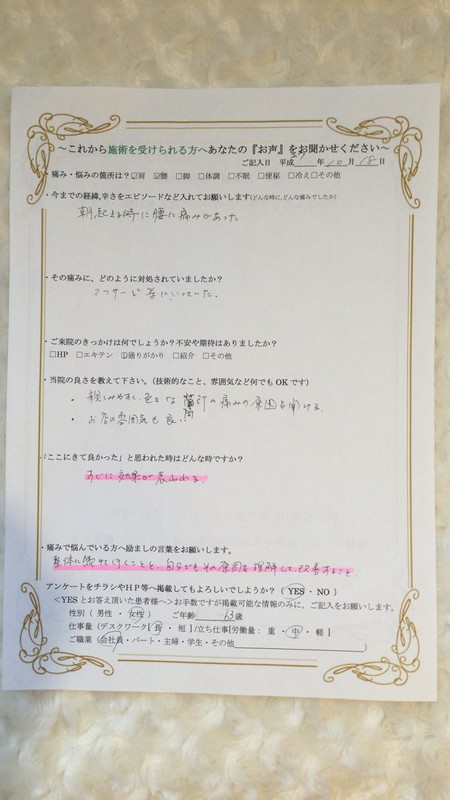 ～これから施術を受けられる方へあなたの『お声』をお聞かせください～
ご記入日 平成 年 10 月 18 日
・痛み・悩みの箇所は？☑肩 ☑腰 □脚 □体調 □不眠 □便秘 □冷え□その他
・今までの経緯,辛さをエピソードなど入れてお願いします(どんな時に,どんな痛みでしたか)
朝,起きる時に腰に痛みがあった
・その痛みに、どのように対処されていましたか？
マッサージ等にいっていた.
・ご来院のきっかけは何でしょうか？不安や期待はありましたか？
□HP □エキテン ☑通りがかり □紹介 □その他
・当院の良さを教えて下さい。（技術的なこと、雰囲気など何でもOKです）
・親しみやすく、色々な箇所の痛みの原因を聞ける.
・お店の雰囲気も良い
・「ここにきて良かった」と思われた時はどんな時ですか？
すぐに効果が表われる.
・痛みで悩んでいる方へ励ましの言葉をお願いします。
整体に通って行くことと、自分でもその原因を理解して、改善すること.
アンケートをチラシやHP等へ掲載してもよろしいでしょうか？（ YES ・ NO ）
＜YESとお答え頂いた患者様へ＞お手数ですが掲載可能な情報のみに、ご記入をお願いします。
性別（ 男性 ・ 女性 ） ご年齢 43歳
仕事量（デスクワーク[ 長 ・ 短 ] /立ち仕事[労働量： 重 ・ 中 ・ 軽 ]
ご職業（会社員・パート・主婦・学生・その他 ）